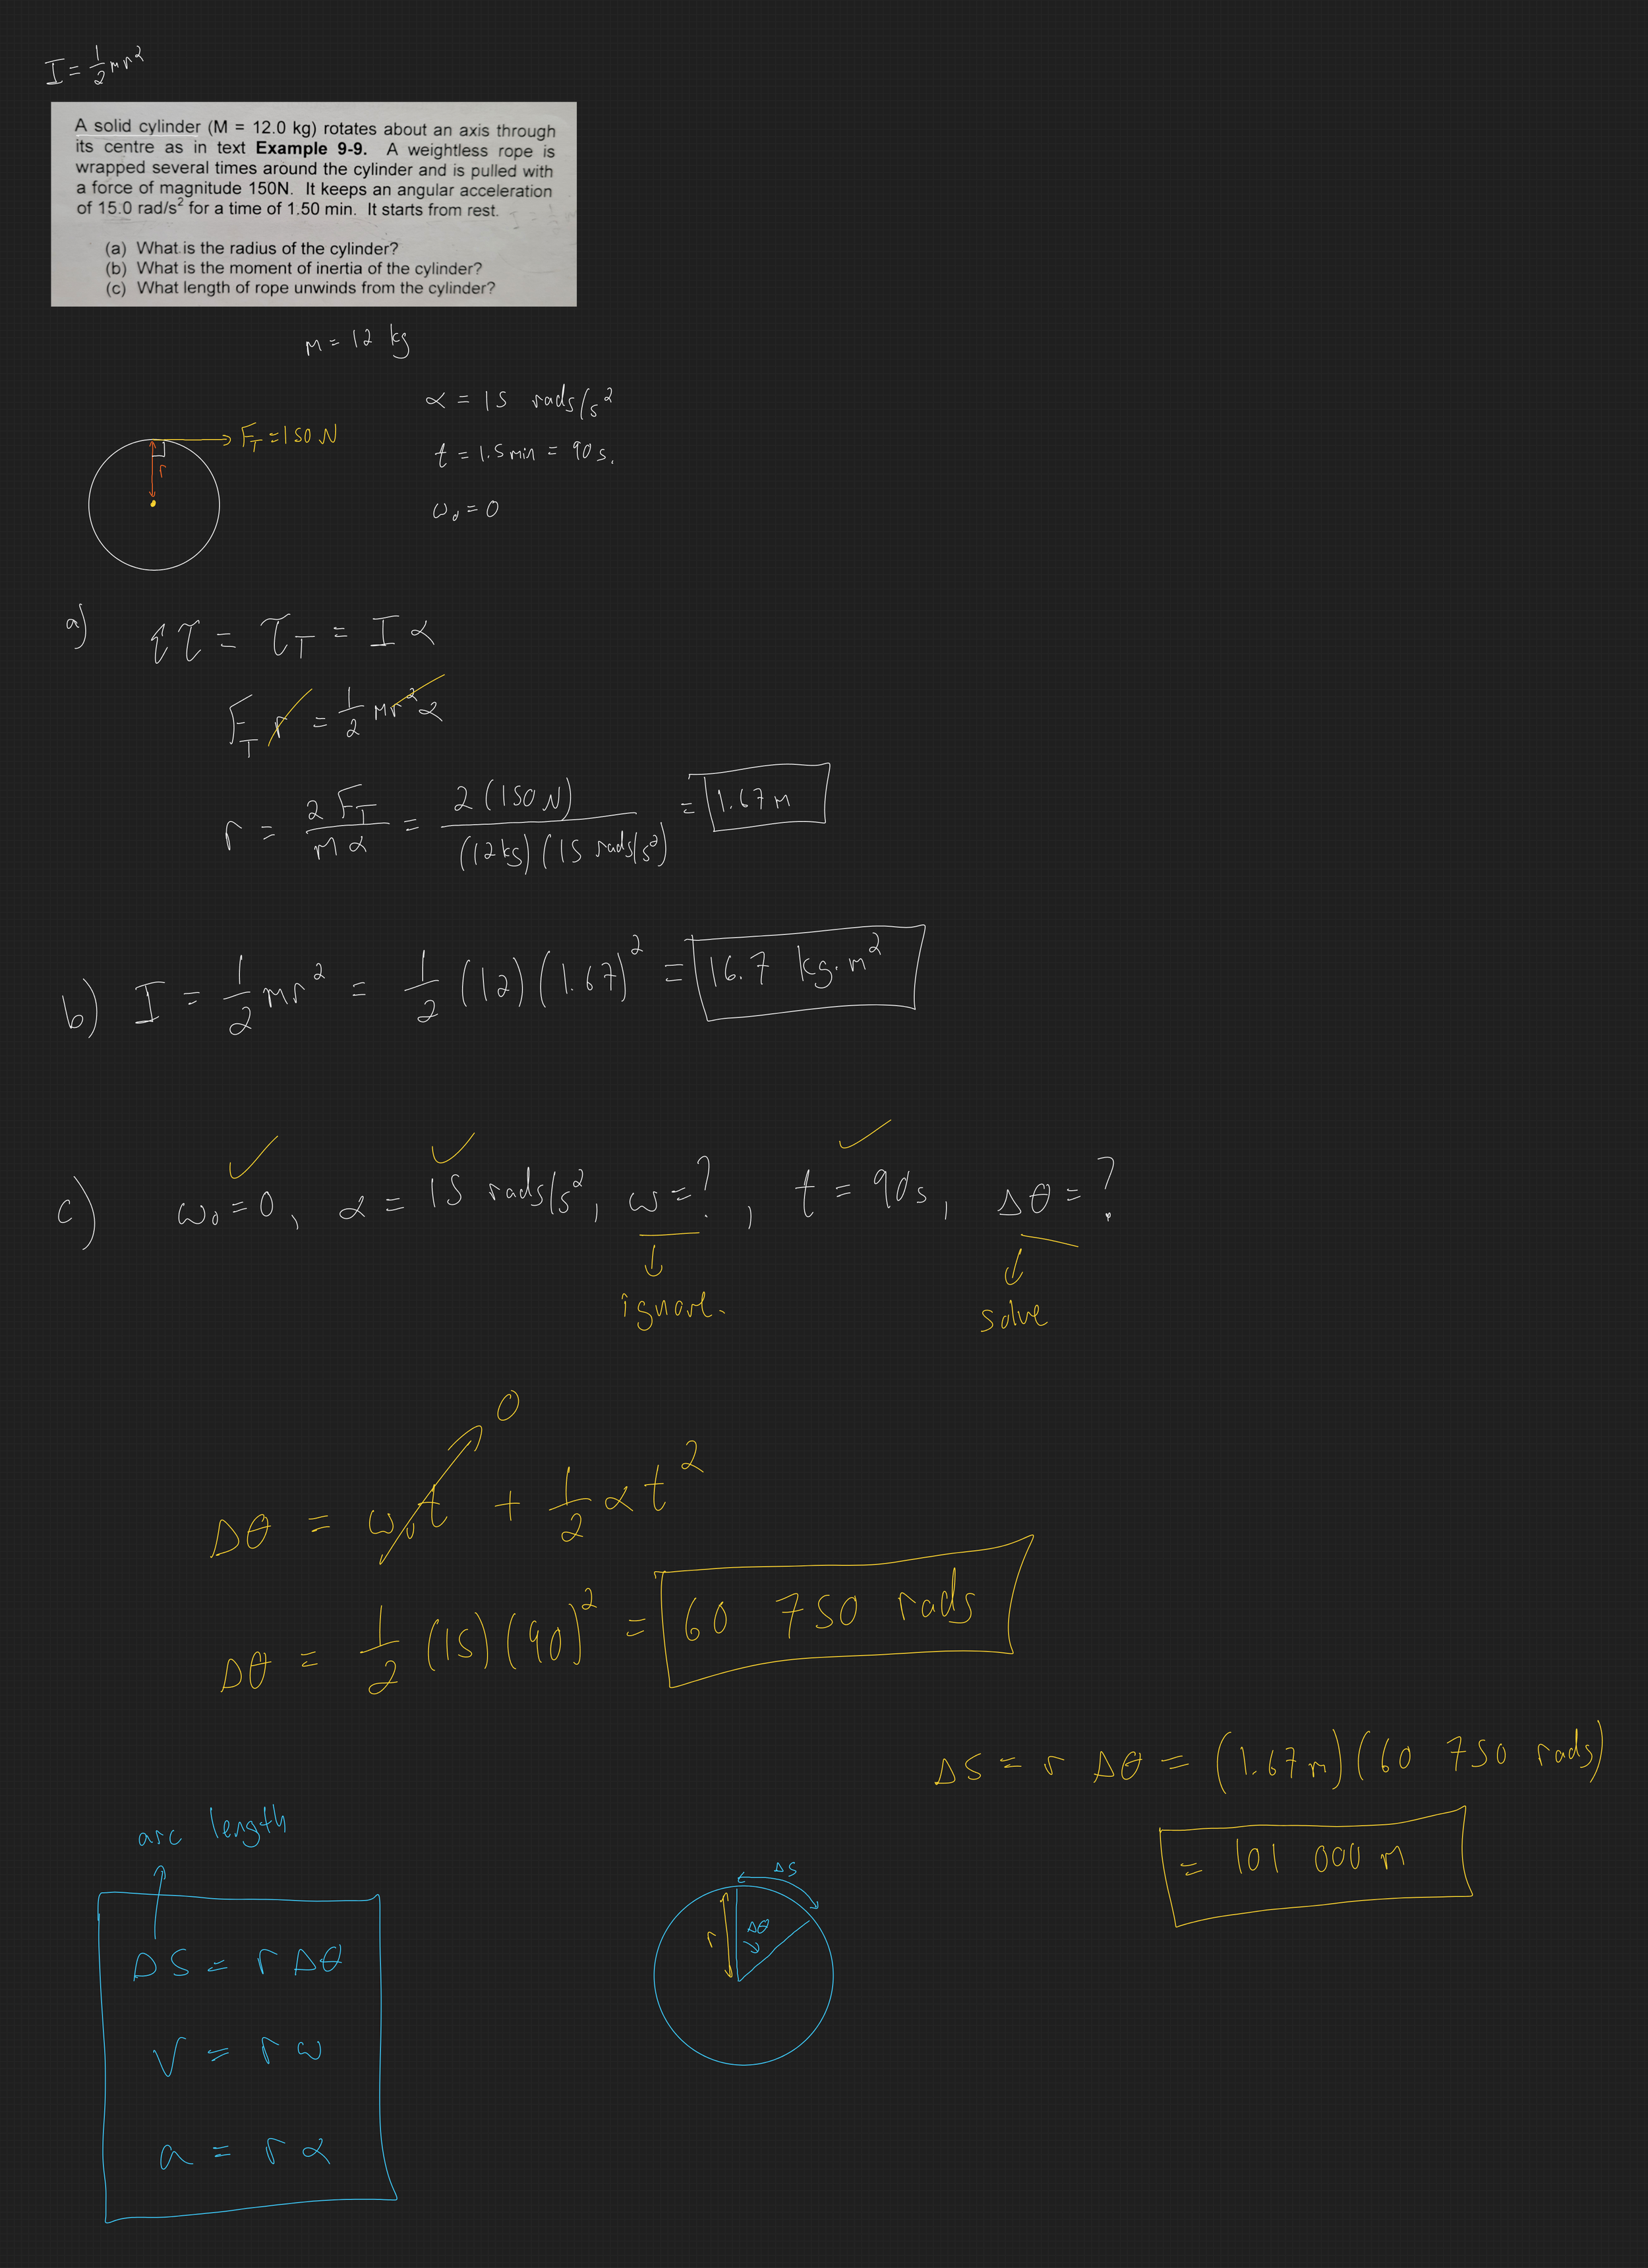 I = 1/2 mr²
A solid cylinder (M = 12.0 kg) rotates about an axis through
its centre as in text Example 9-9. A weightless rope is
wrapped several times around the cylinder and is pulled with
a force of magnitude 150N. It keeps an angular acceleration
of 15.0 rad/s² for a time of 1.50 min. It starts from rest.
(a) What is the radius of the cylinder?
(b) What is the moment of inertia of the cylinder?
(c) What length of rope unwinds from the cylinder?
M = 12 kg
α = 15 rads/s²
F_T = 150 N
t = 1.5 min = 90 s.
r
ω₀ = 0
a) Στ = τ_T = Iα
F_T r = 1/2 mr² α
r = 2 F_T / mα = 2 (150 N) / (12 kg) (15 rads/s²) = 1.67 m
b) I = 1/2 mr² = 1/2 (12) (1.67)² = 16.7 kg·m²
c) ω₀ = 0, α = 15 rads/s², ω = ?, t = 90s, Δθ = ?
ignore. solve
0
Δθ = ω₀t + 1/2 αt²
Δθ = 1/2 (15) (90)² = 60 750 rads
ΔS = r Δθ = (1.67 m) (60 750 rads)
= 101 000 m
arc length
ΔS = r Δθ
v = r ω
a = r α
ΔS
Δθ
r